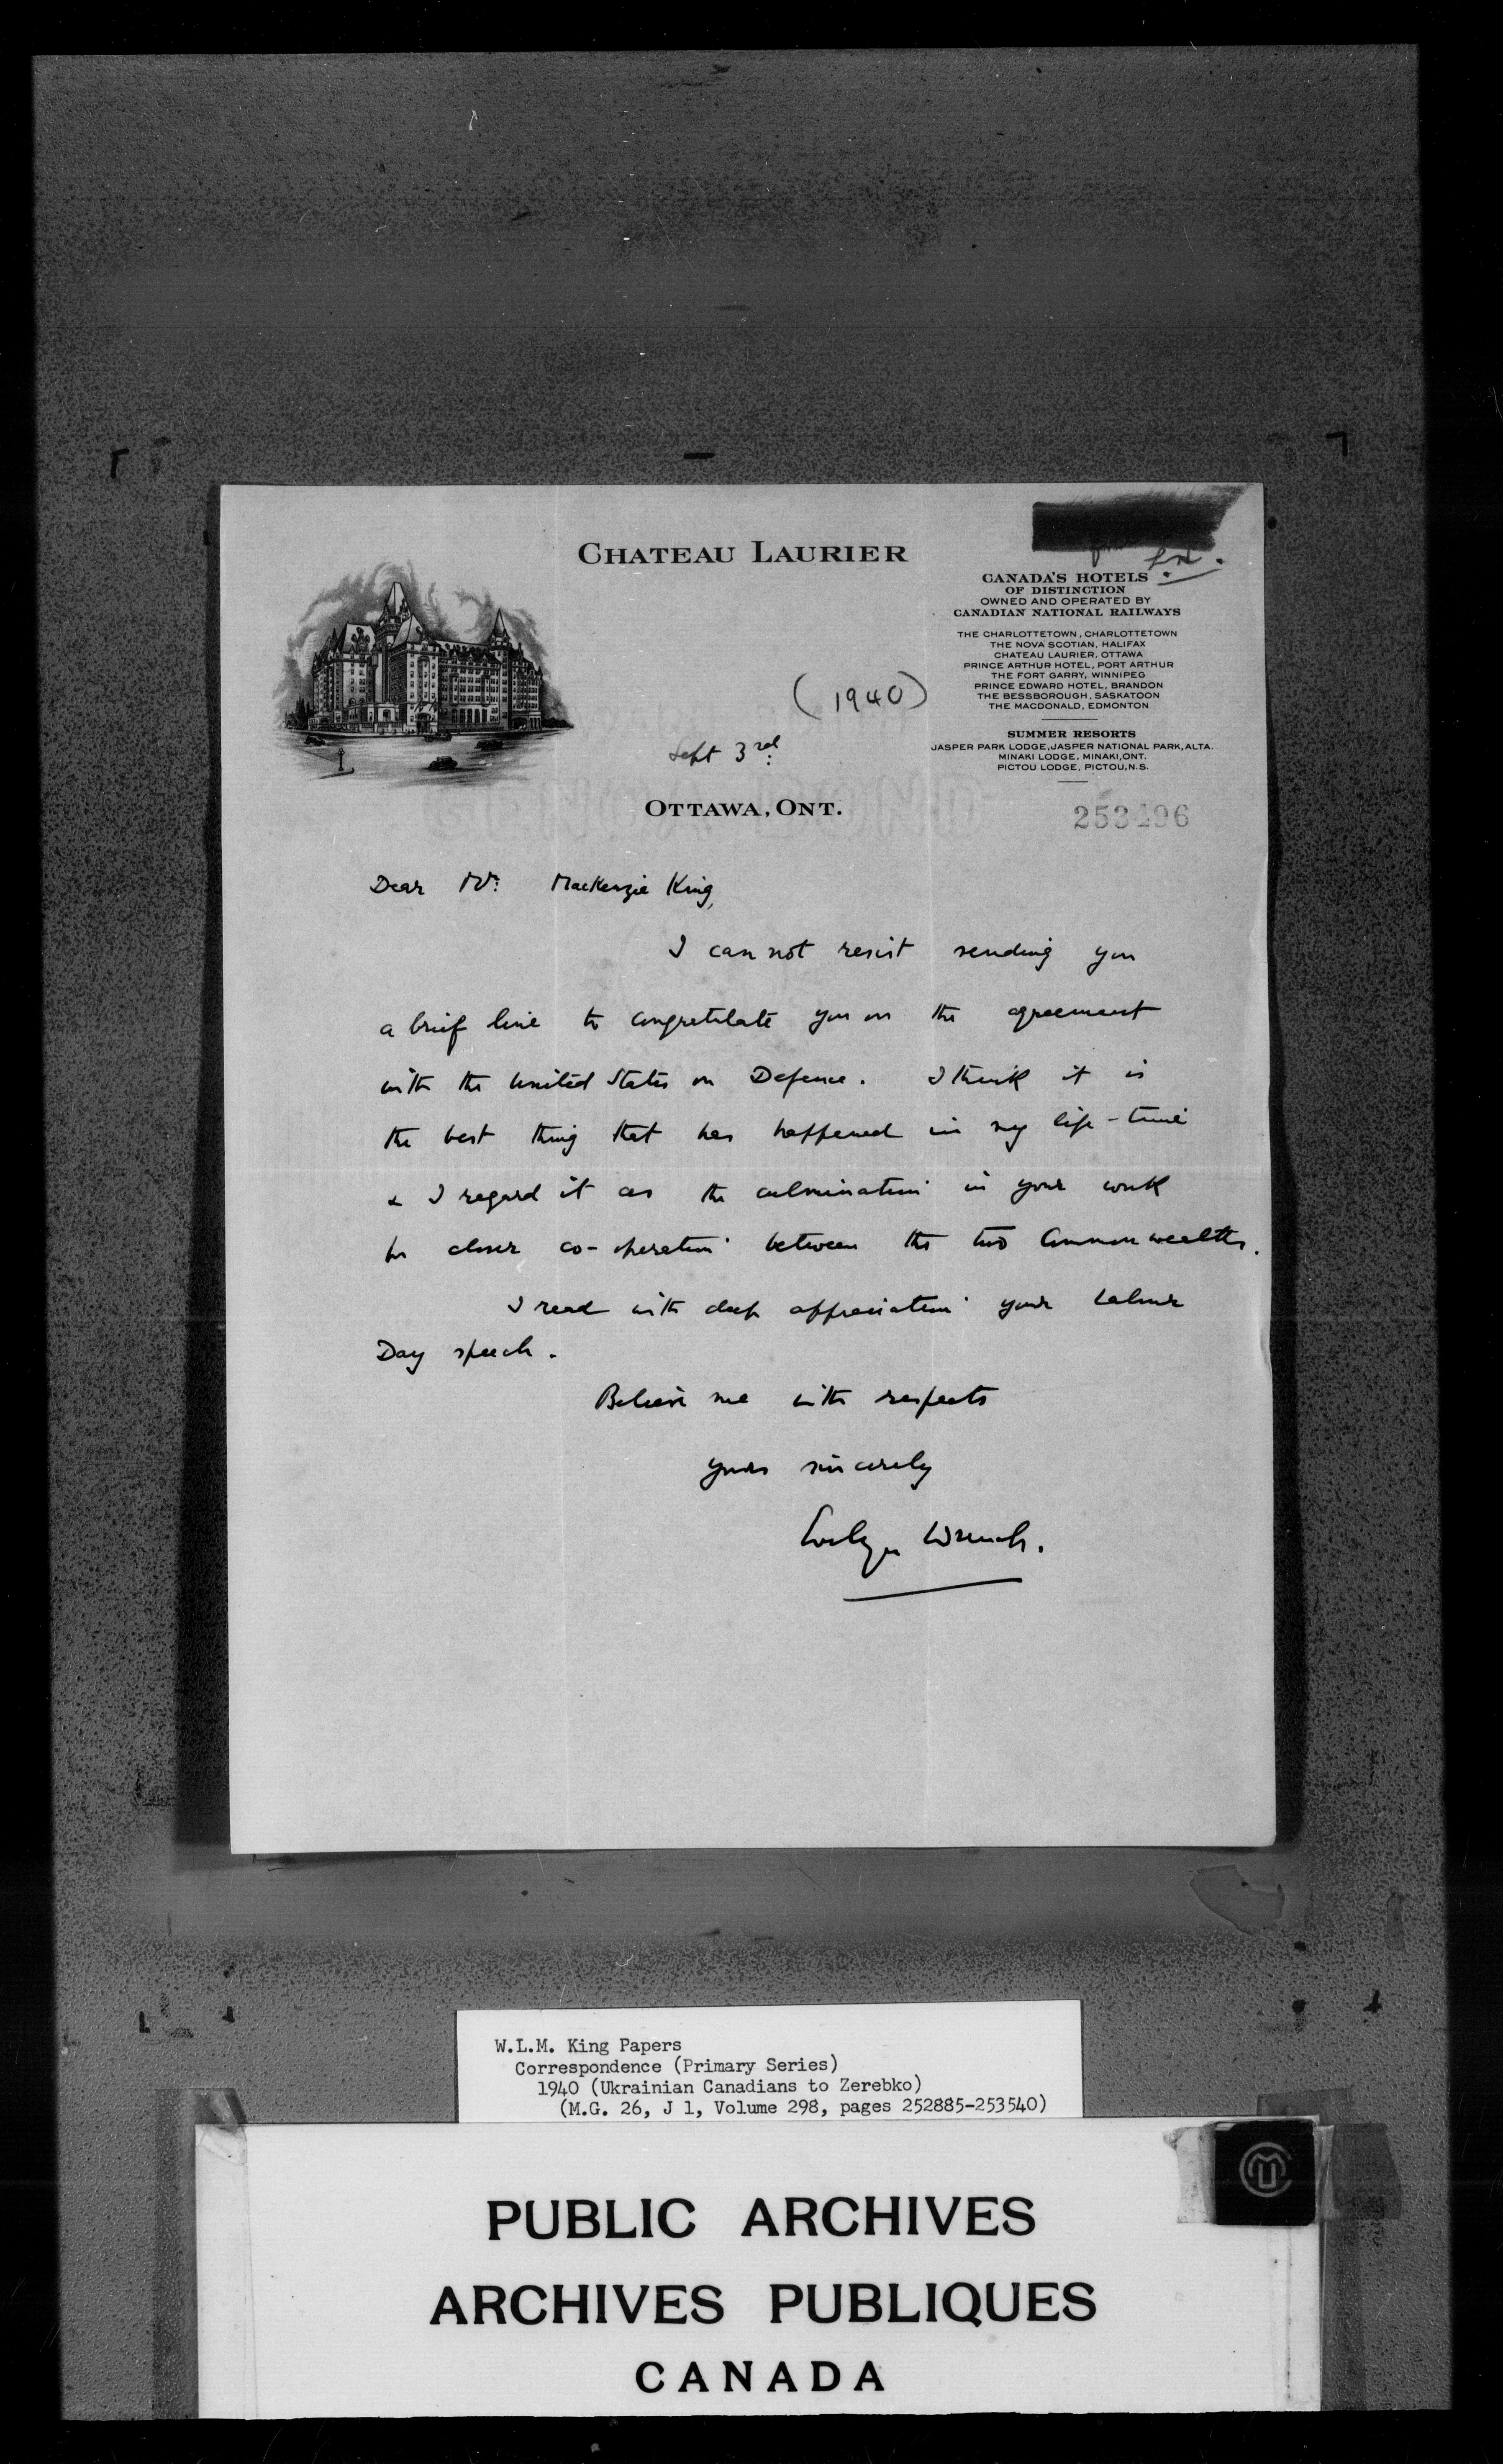 CHATEAU LAURIER
CANADA'S HOTELS
OF DISTINCTION
OWNED AND OPERATED BY
CANADIAN NATIONAL RAILWAYS
THE CHARLOTTETOWN, CHARLOTTETOWN
THE NOVA SCOTIAN, HALIFAX
CHATEAU LAURIER, OTTAWA
PRINCE ARTHUR HOTEL, PORT ARTHUR
THE FORT GARRY, WINNIPEG
PRINCE EDWARD HOTEL, BRANDON
THE BESSBOROUGH, SASKATOON
THE MACDONALD, EDMONTON
SUMMER RESORTS
JASPER PARK LODGE, JASPER NATIONAL PARK, ALTA.
MINAKI LODGE, MINAKI, ONT.
PICTOU LODGE, PICTOU, N.S.
(1940)
Sept 3rd
OTTAWA, ONT.
253496
Dear Mr. Mackenzie King,
I can not resist sending you
a brief line to congratulate you on the agreement
with the United States on Defence. I think it is
the best thing that has happened in my life-time
& I regard it as the culmination in your work
for closer co-operation between the two Commonwealths.
I read with deep appreciation your Labour
Day speech.
Believe me with respects
yours sincerely
Evelyn Wrench.
W.L.M. King Papers
Correspondence (Primary Series)
1940 (Ukrainian Canadians to Zerebko)
(M.G. 26, J 1, Volume 298, pages 252885-253540)
PUBLIC ARCHIVES
ARCHIVES PUBLIQUES
CANADA